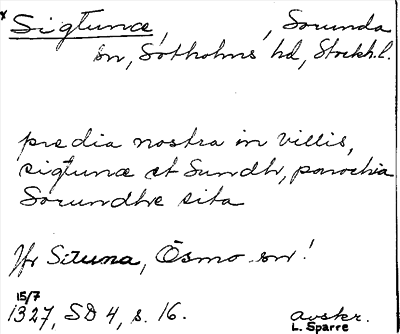 x Sigtunæ, , Sorunda
sn, Sotholms hd, Stockh.l.
prædia nostra in villis,
sigtunæ et Sundh, parochia
Sorundhe sita
Jfr Situna, Ösmo sn!
15/7
1327, SD 4, s. 16. avskr.
L. Sparre